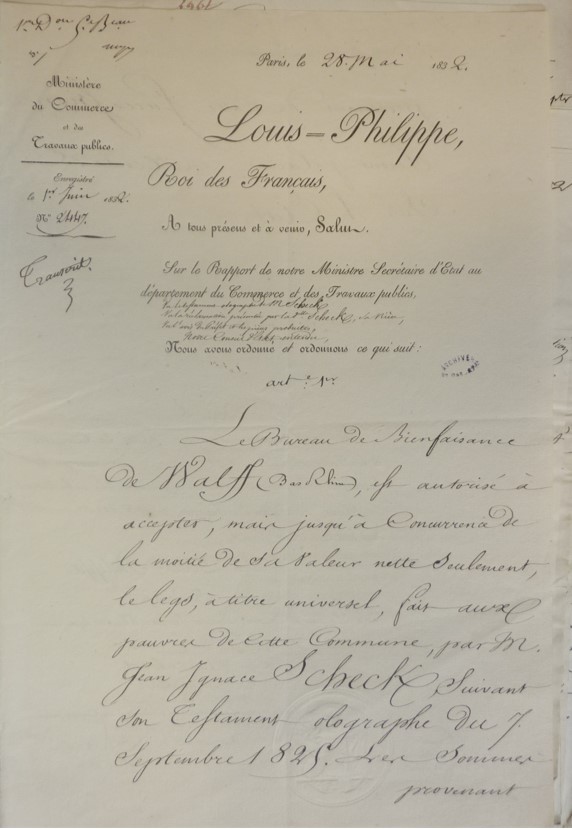 Paris, le 28. Mai 1832.
Ministère
du Commerce
et des
Travaux publics.
Enregistré
le 1er Juin 1832.
no. 2447.
Transcrit.
Louis=Philippe,
Roi des Français,
A tous présens et à venir, Salut.
Sur le Rapport de notre Ministre Secrétaire d'Etat au
département du Commerce et des Travaux publics,
Vu le testament olographe de M. Scheck
Vu la réclamation présentée par la De Scheck, sa Nièce,
Notre Conseil d'Etat entendu,
Nous avons ordonné et ordonnons ce qui suit:
art. 1er
ARCHIVES
Le Bureau de Bienfaisance
de Walff (Bas Rhin), est autorisé à
accepter, mais jusqu'à Concurrence de
la moitié de sa Valeur nette Seulement,
le legs, à titre universel, fait aux
pauvres de Cette Commune, par M.
Jean Ignace Scheck, Suivant
son Testament olographe du 7.
Septembre 1825. Les Sommes
provenant